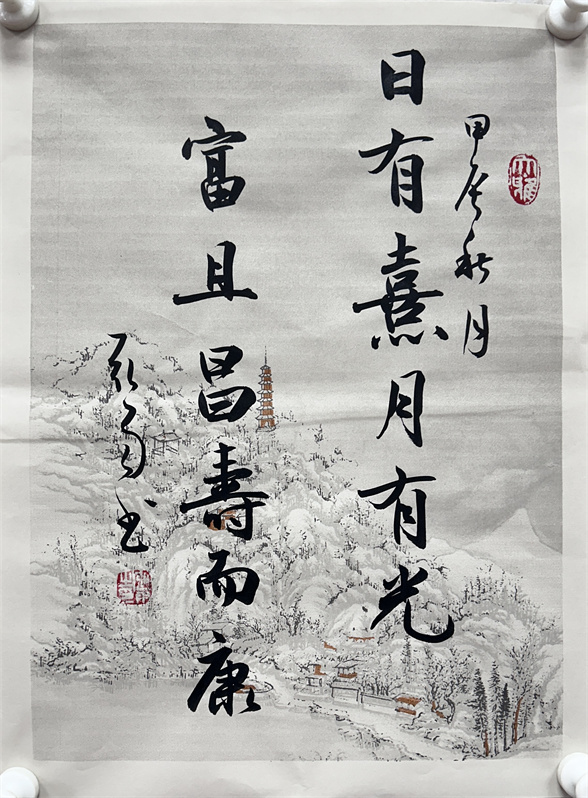 甲辰秋月
日有熹月有光
富且昌壽而康
书